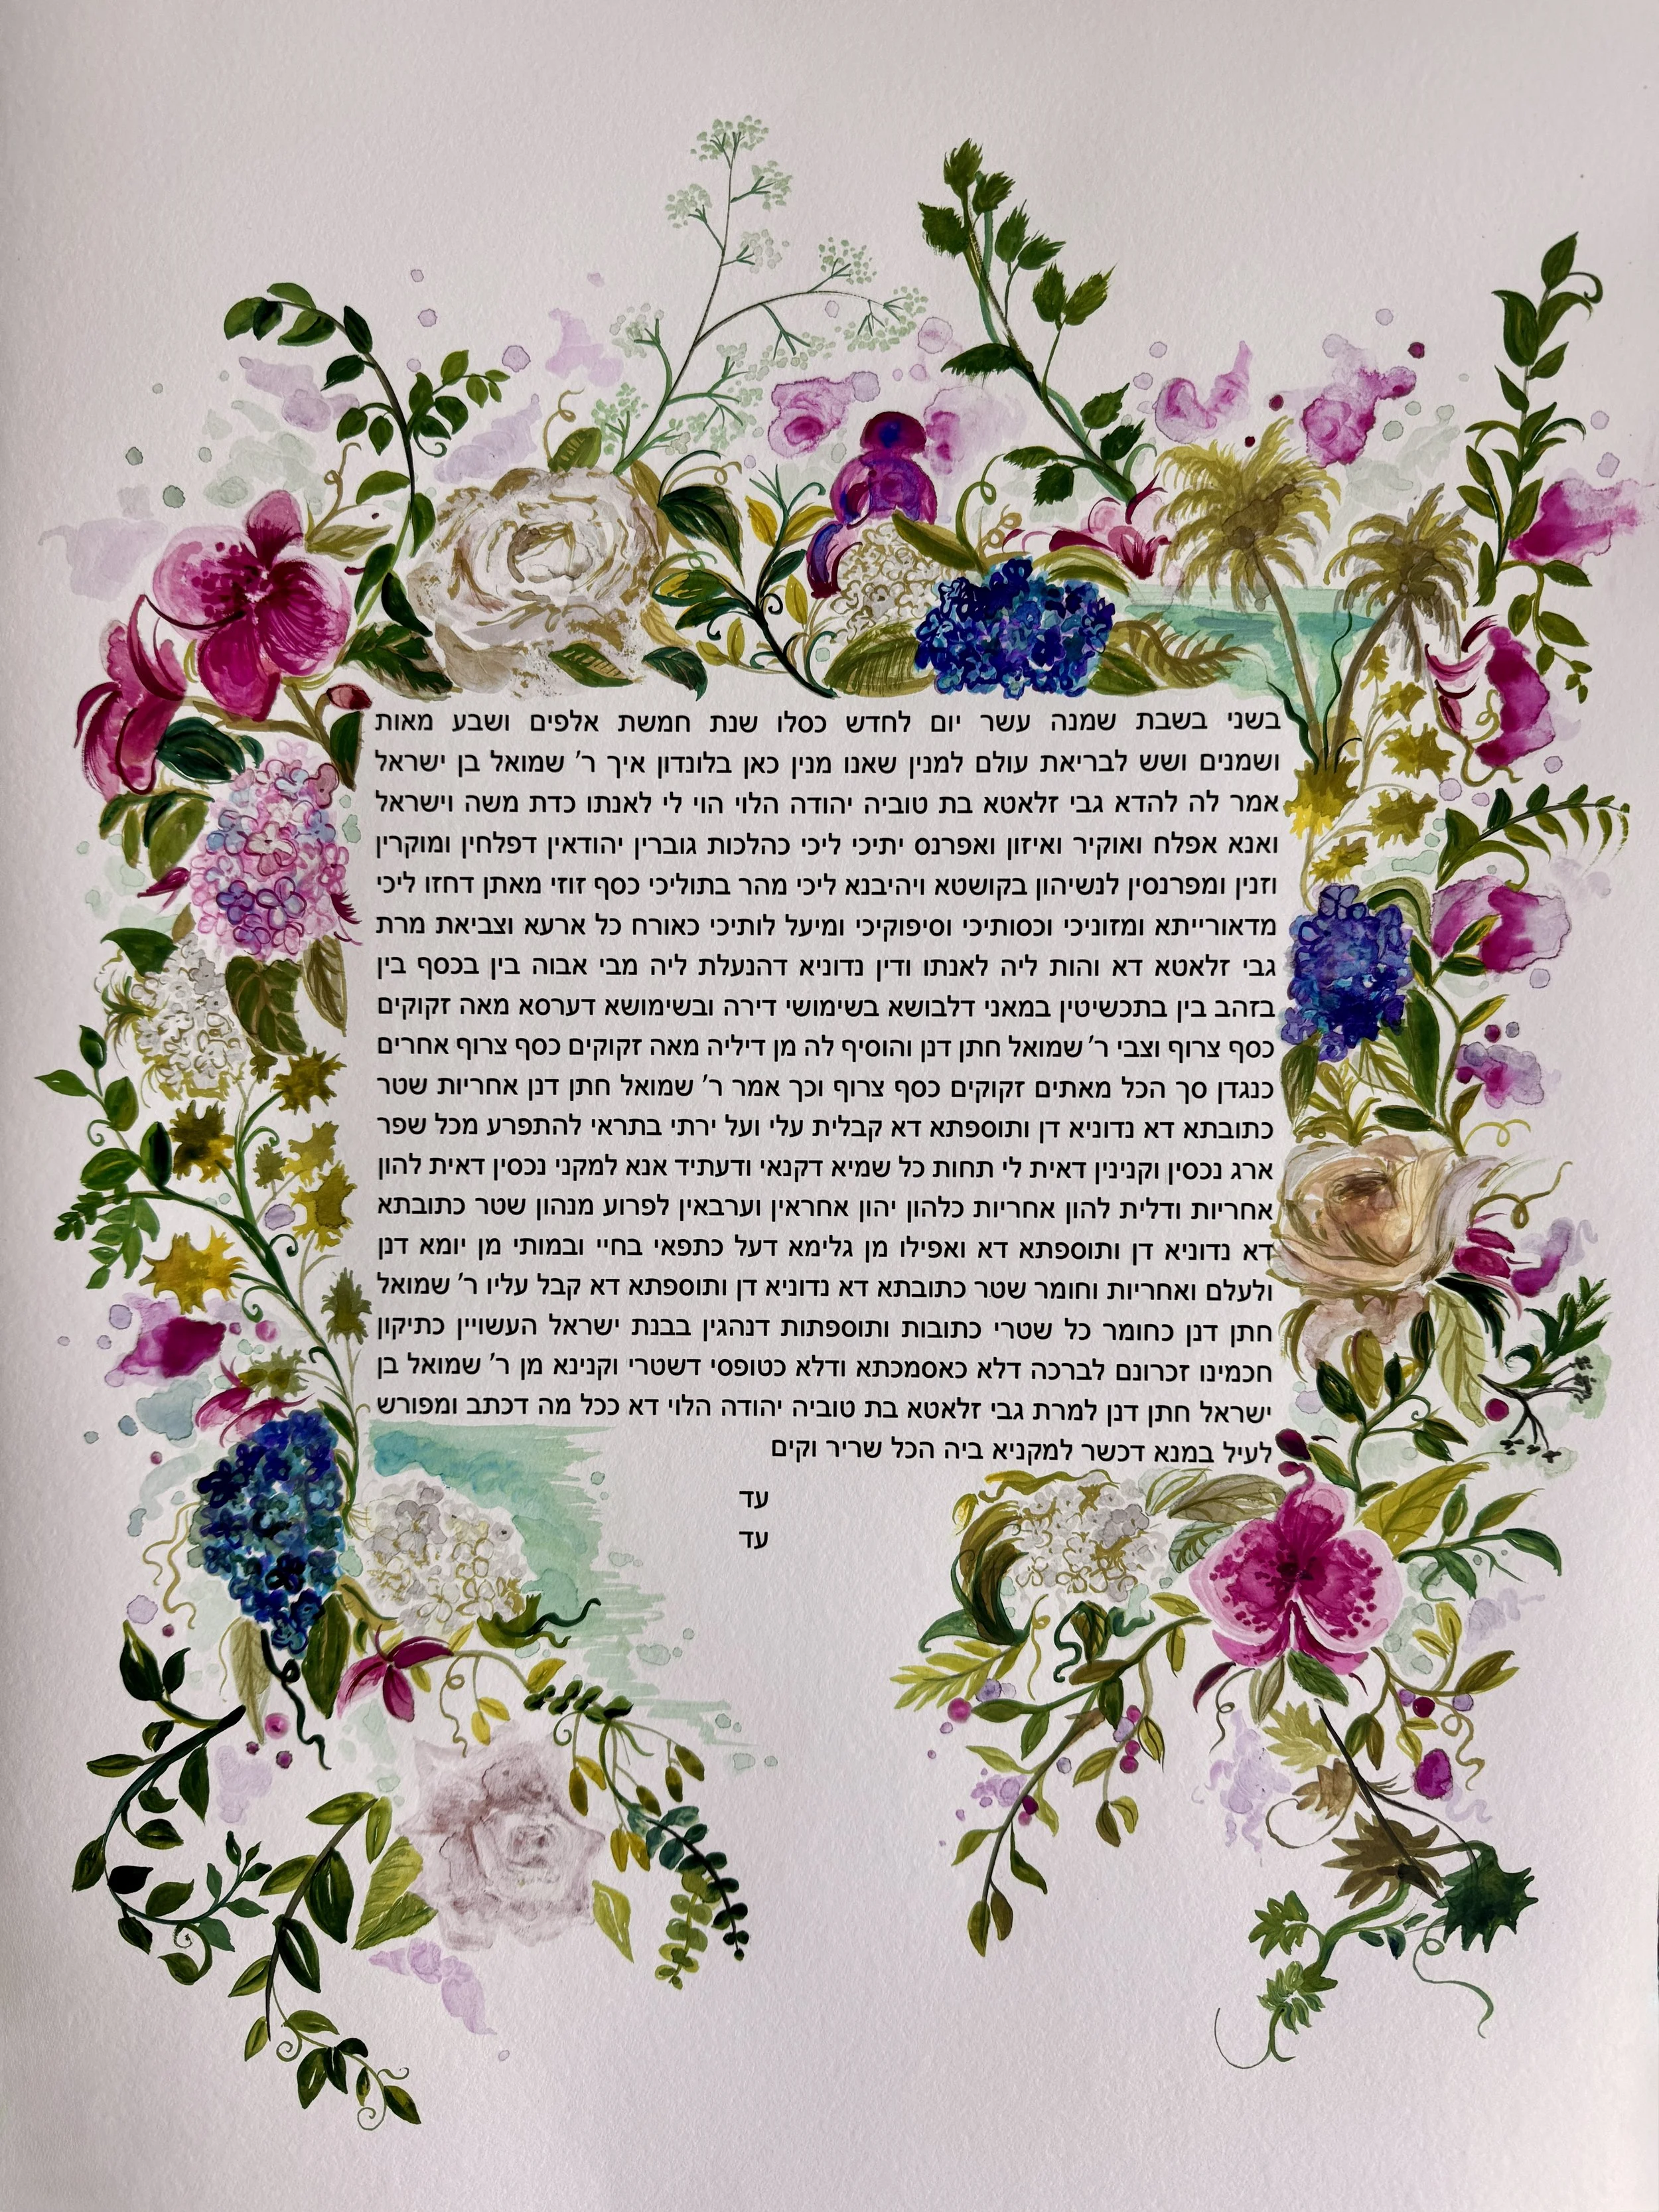 בשני בשבת שמנה עשר יום לחדש כסלו שנת חמשת אלפים ושבע מאות
ושמנים ושש לבריאת עולם למנין שאנו מנין כאן בלונדון איך ר׳ שמואל בן ישראל
אמר לה להדא גבי זלאטא בת טוביה יהודה הלוי הוי לי לאנתו כדת משה וישראל
ואנא אפלח ואוקיר ואיזון ואפרנס יתיכי ליכי כהלכות גוברין יהודאין דפלחין ומוקרין
וזנין ומפרנסין לנשיהון בקושטא ויהיבנא ליכי מהר בתוליכי כסף זוזי מאתן דחזו ליכי
מדאורייתא ומזוניכי וכסותיכי וסיפוקיכי ומיעל לותיכי כאורח כל ארעא וצביאת מרת
גבי זלאטא דא והות ליה לאנתו ודין נדוניא דהנעלת ליה מבי אבוה בין בכסף בין
בזהב בין בתכשיטין במאני דלבושא בשימושי דירה ובשימושא דערסא מאה זקוקים
כסף צרוף וצבי ר׳ שמואל חתן דנן והוסיף לה מן דיליה מאה זקוקים כסף צרוף אחרים
כנגדן סך הכל מאתים זקוקים כסף צרוף וכך אמר ר׳ שמואל חתן דנן אחריות שטר
כתובתא דא נדוניא דן ותוספתא דא קבלית עלי ועל ירתי בתראי להתפרע מכל שפר
ארג נכסין וקנינין דאית לי תחות כל שמיא דקנאי ודעתיד אנא למקני נכסין דאית להון
אחריות ודלית להון אחריות כלהון יהון אחראין וערבאין לפרוע מנהון שטר כתובתא
דא נדוניא דן ותוספתא דא ואפילו מן גלימא דעל כתפאי בחיי ובמותי מן יומא דנן
ולעלם ואחריות וחומר שטר כתובתא דא נדוניא דן ותוספתא דא קבל עליו ר׳ שמואל
חתן דנן כחומר כל שטרי כתובות ותוספתות דנהגין בבנת ישראל העשויין כתיקון
חכמינו זכרונם לברכה דלא כאסמכתא ודלא כטופסי דשטרי וקנינא מן ר׳ שמואל בן
ישראל חתן דנן למרת גבי זלאטא בת טוביה יהודה הלוי דא ככל מה דכתב ומפורש
לעיל במנא דכשר למקניא ביה הכל שריר וקים
עד
עד